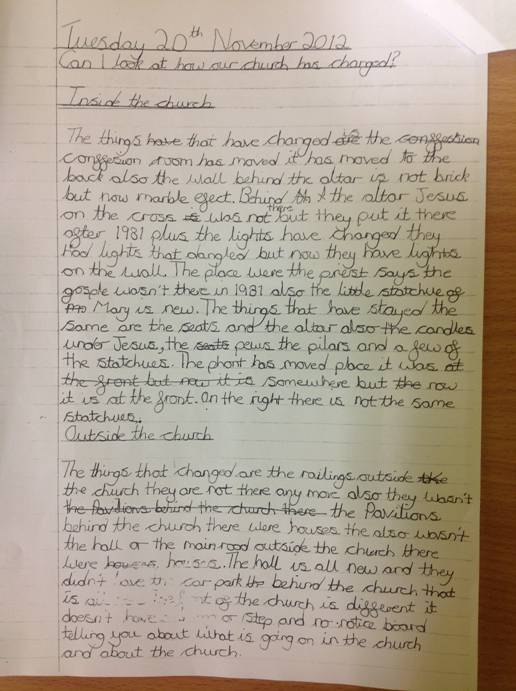 Tuesday 20th November 2012
Can I look at how our church has changed?
Inside the church
The things have that have changed are the conffection
conffesion room has moved it has moved to the
back also the wall behind the altar is not brick
but now marble efect. Behind th & the altar Jesus
on the cross is was not there but they put it there
after 1981 plus the lights have changed they
Had lights that dangled but now they have lights
on the wall. The place were the priest says the
gosple wasn't there in 1981 also the little statchue of
Mary is new. The things that have stayed the
same are the seats and the altar also the candles
under Jesus, the seats pews the pilars and a few of
the statchues. The phont has moved place it was at
the front but now it is somewhere but the now
it is at the front. On the right there is not the same
statchues.
Outside the church
The things that changed are the railings outside the
the church they are not there any more also they wasn't
the Pavilions behind the church there the Pavilions
behind the church there were houses the also wasn't
the hall or the main road outside the church there
were houses. The hall is all new and they
didn't have the car park the behind the church that
is of the church is different it
doesn't have a or step and no notice board
telling you about what is going on in the church
and about the church.